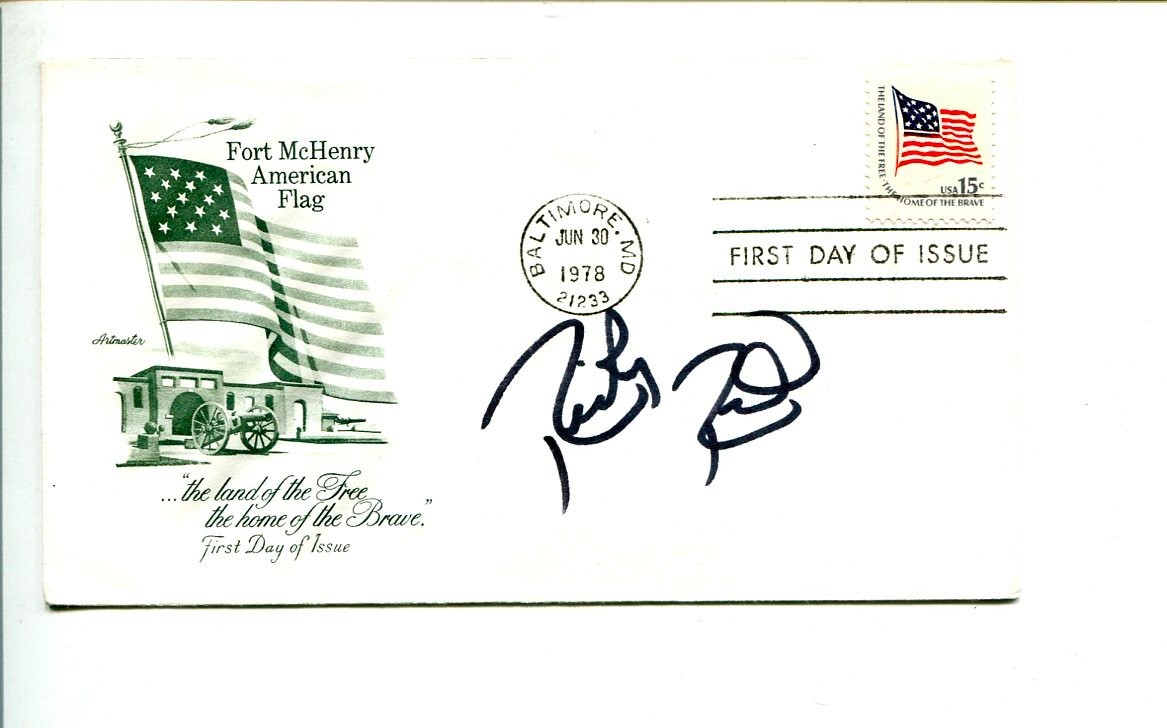 Fort McHenry
American
Flag
Artmaster
..."the land of the Free
the home of the Brave."
First Day of Issue
BALTIMORE. MD
JUN 30
1978
21233
THE LAND OF THE FREE · THE HOME OF THE BRAVE
USA 15c
FIRST DAY OF ISSUE